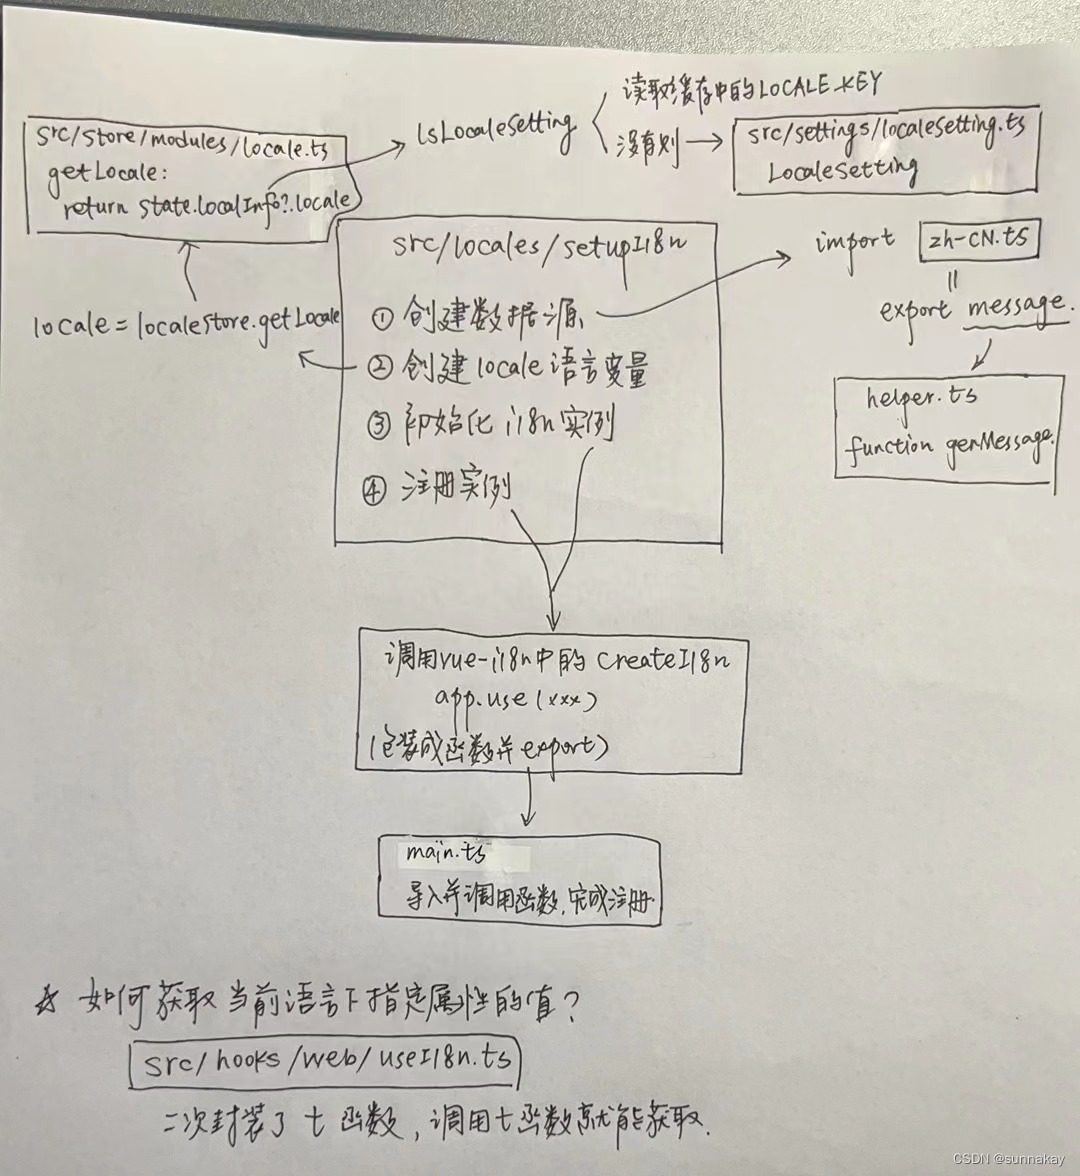 读取缓存中的LOCALE_KEY
lsLocaleSetting
没有则
src/settings/localeSetting.ts
LocaleSetting
src/store/modules/locale.ts
getLocale:
return state.localInfo?.locale
locale = localeStore.getLocale
src/locales/setupI18n
① 创建数据源
② 创建locale语言变量
③ 初始化 i18n实例
④ 注册实例
import zh-CN.ts
=
export message.
helper.ts
function genMessage.
调用vue-i18n中的 createI18n
app.use(xxx)
(包装成函数并export)
main.ts
导入并调用函数,完成注册.
☆ 如何获取当前语言下指定属性的值?
src/hooks/web/useI18n.ts
二次封装了 t 函数, 调用t函数就能获取.
CSDN @sunnakay